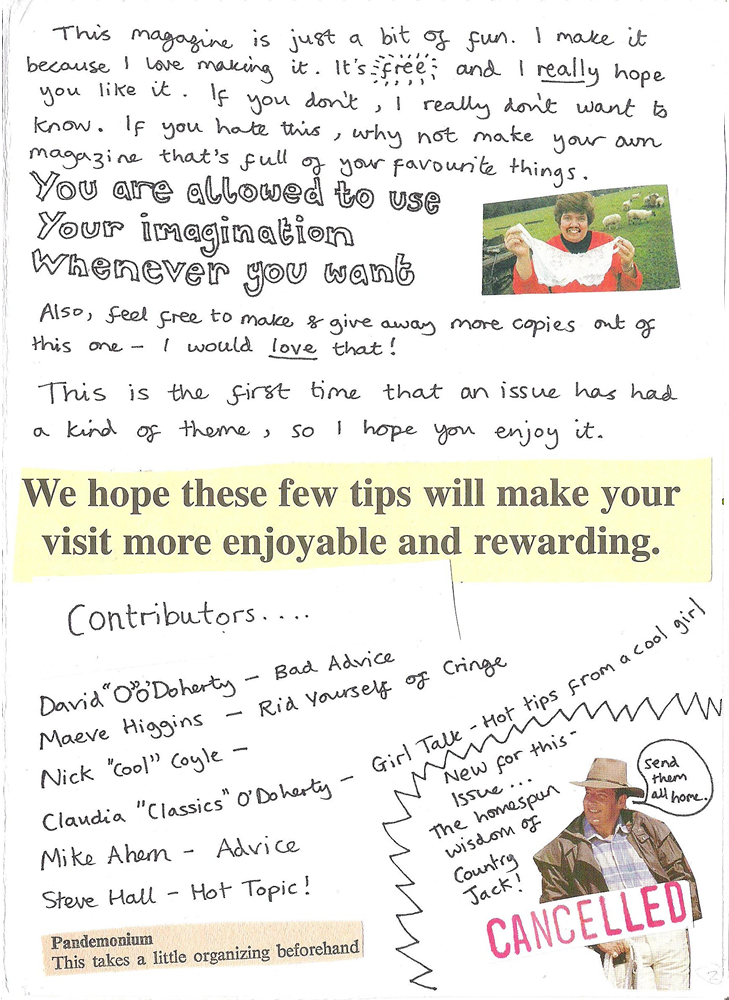 This magazine is just a bit of fun. I make it
because I love making it. It's free and I really hope
you like it. If you don't, I really don't want to
know. If you hate this, why not make your own
magazine that's full of your favourite things.
You are allowed to use
Your imagination
Whenever you want
Also, feel free to make & give away more copies out of
this one – I would love that!
This is the first time that an issue has had
a kind of theme, so I hope you enjoy it.
We hope these few tips will make your
visit more enjoyable and rewarding.
Contributors....
David "O"o'Doherty – Bad Advice
Maeve Higgins – Rid Yourself of Cringe
Nick "Cool" Coyle –
Claudia "Classics" O'Doherty – Girl Talk - Hot tips from a cool girl
Mike Ahern – Advice
Steve Hall – Hot Topic!
Pandemonium
This takes a little organizing beforehand
New for this-
Issue...
The homespun
wisdom of
Country
Jack!
send
them
all home.
CANCELLED
2